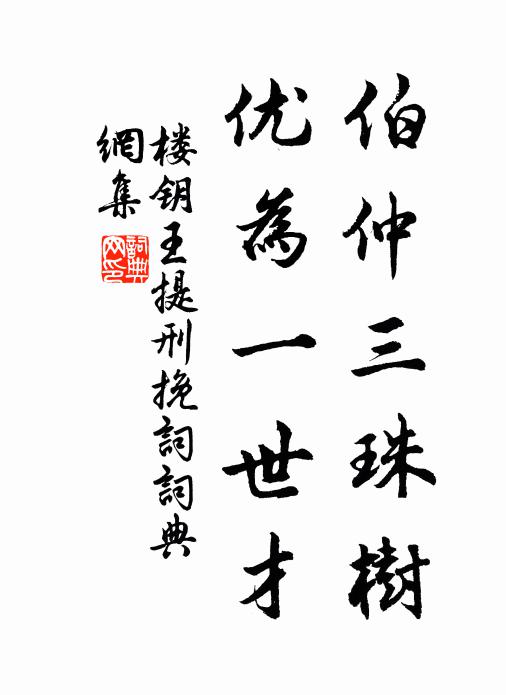 伯仲三珠樹
优為一世才
楼钥王提刑挽詞詞典
網集
詞典
网印